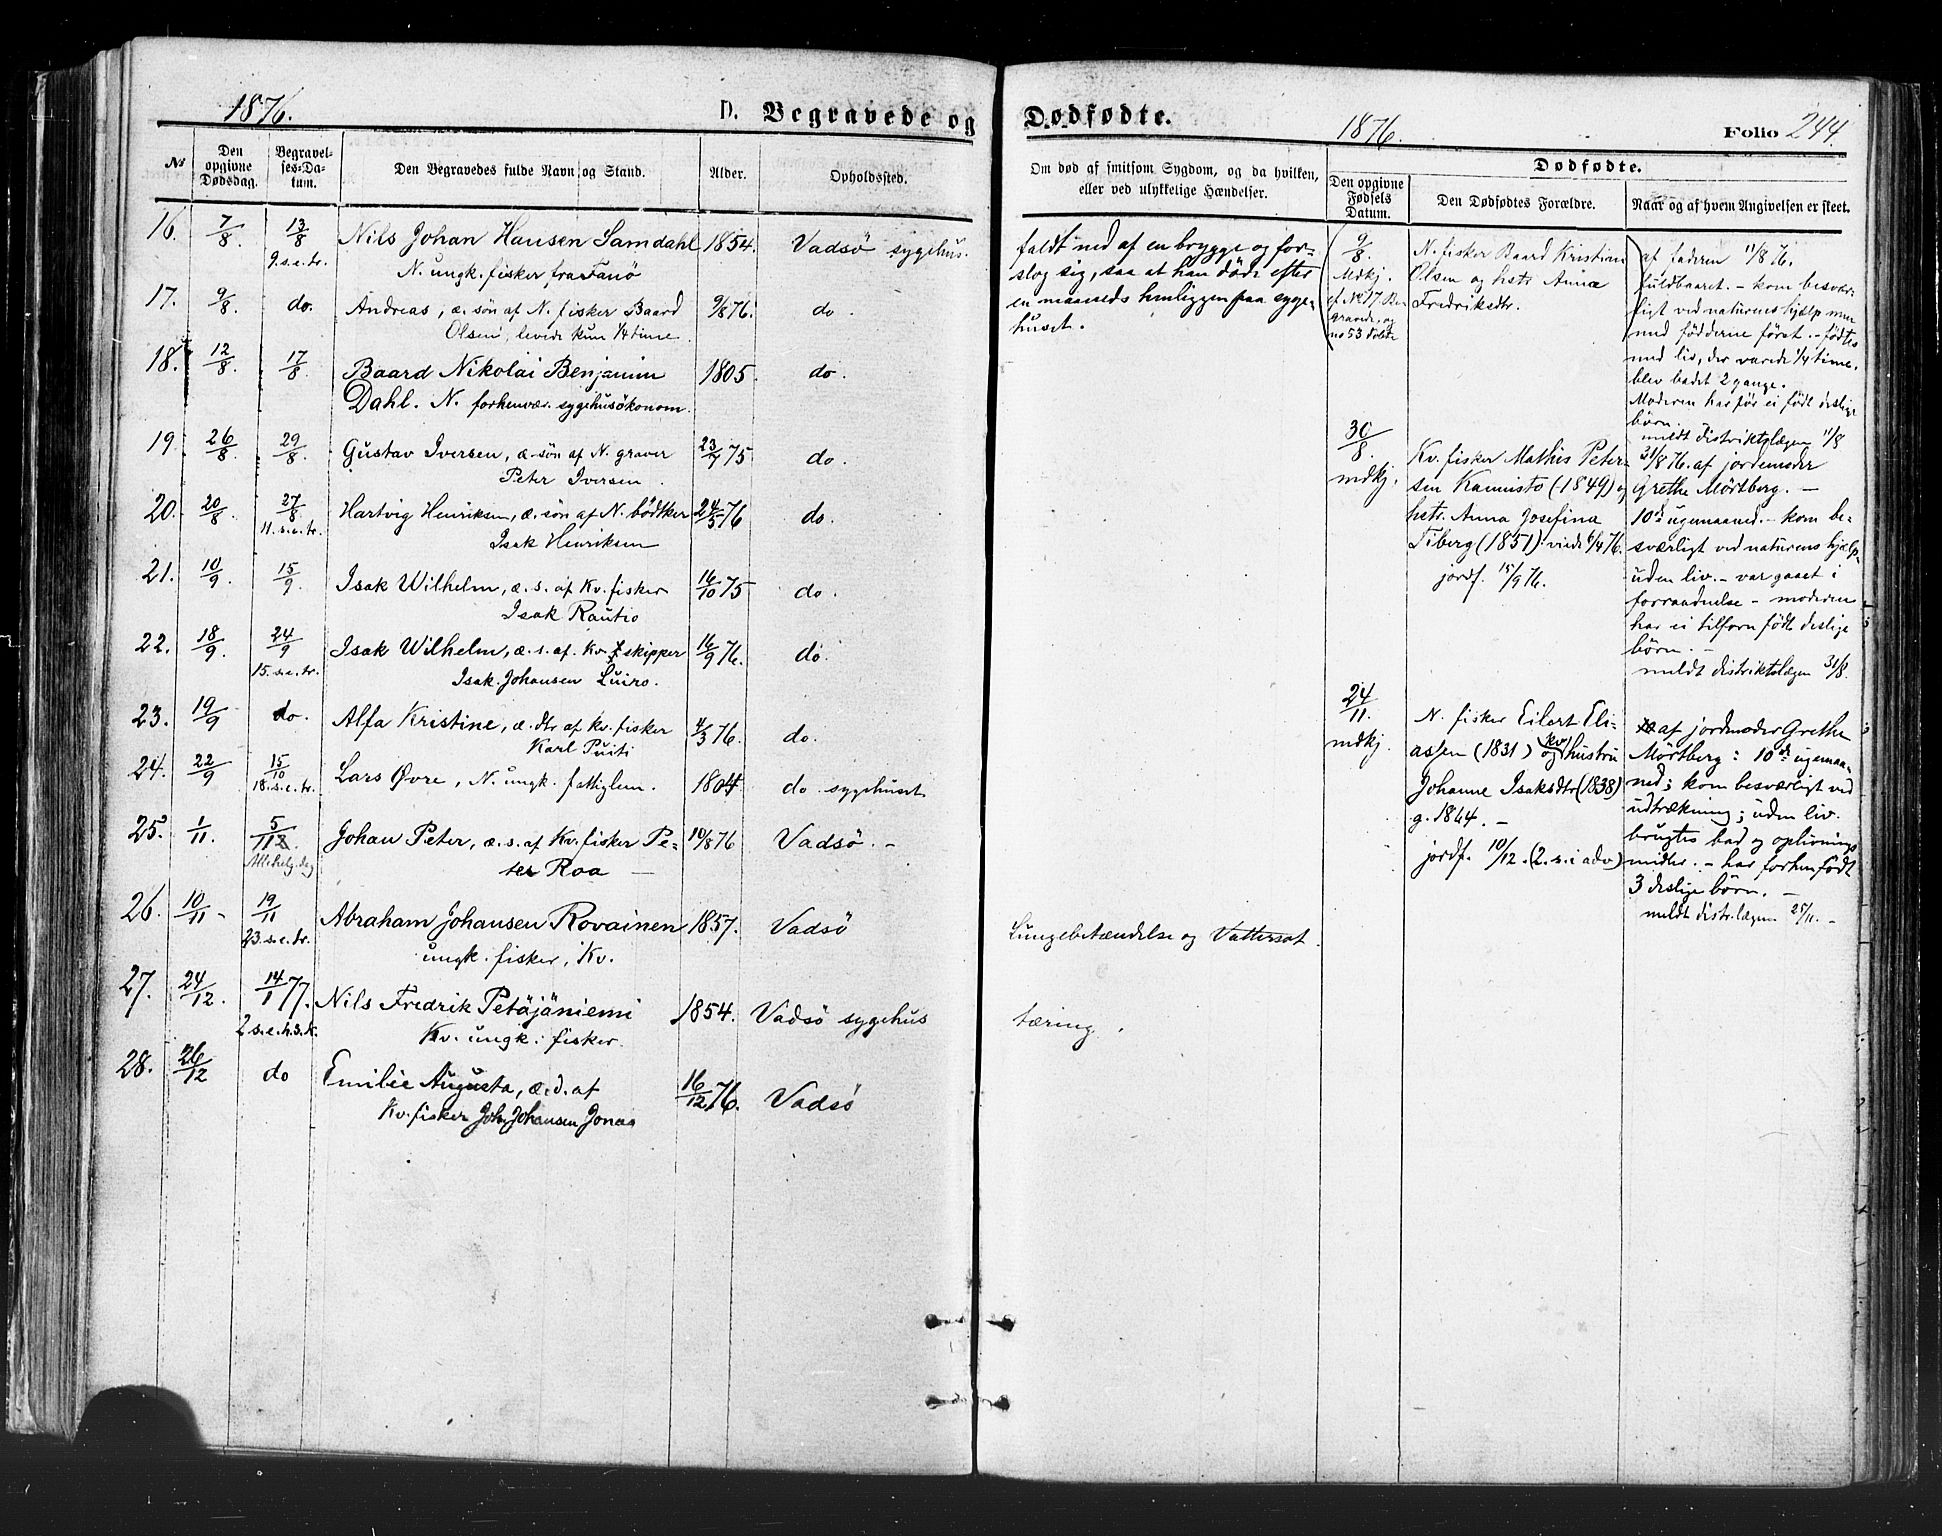 1876.
D. Begravede og
No
Den opgivne Dødsdag.
Begravelses-Datum.
Den Begravedes fulde Navn og Stand.
Alder.
Opholdssted.
16. 7/8. 13/8 Nils Johan Hansen Samdahl 1854. Vadsö sygehus.
9. s. e. tr. N. ungk. fisker fra Fanö
17. 9/8. do. Andreas, æ. sön af N. fisker Baard 9/876. do.
Olsen, levede kun 1/4 time.
18. 12/8. 17/8 Baard Nikolai Benjamin 1805. do.
Dahl. N. forhenvær. sygehusökonom.
19. 26/8 29/8. Gustav Iversen, æ. sön af N. graver 23/7 75 do.
Peter Iversen.
20. 20/8. 27/8 Hartvig Henriksen, æ. sön af N. bödtker 24/5 76 do.
11. s. e. tr. Isak Henriksen
21. 10/9. 15/9. Isak Wilhelm, æ. s. af Kv. fisker 16/10 75 do.
Isak Rautio
22. 18/9. 24/9 Isak Wilhelm, æ. s. af. Kv. skipper 16/9 76. do.
15. s. e. tr. Isak Johansen Luiro.
23. 19/9 do. Alfa Kristine, æ. dtr af kv. fisker 4/3 76. do.
Karl Puiti
24. 22/9 15/10 Lars Øvre, N. ungk. fattiglem. 1804. do. sygehuset
18. s. e. tr.
25. 1/11. 5/11 Johan Peter, æ. s. af Kv. fisker Pe- 10/876 Vadsö. -
Allehelg. dag ter Roa —
26. 10/11 - 19/11 Abraham Johansen Rovainen 1857. Vadsö
23. s. e. tr. ungk. fisker, Kv.
27. 24/12. 14/1 77. Nils Fredrik Petäjäniemi 1854. Vadsö sygehus
2 s. e. h. 3. k. Kv. ungk. fisker.
28. 26/12 do Emilie Augusta, æ. d. af 16/12 76. Vadsö
Kv. fisker Joh. Johansen Jonas
Dødfødte.
1876.
Folio 244.
Om død af smitsom Sygdom, og da hvilken,
eller ved ulykkelige Hændelser.
Dødfødte.
Den opgivne Fødsels Datum.
Den Dødfødtes Forældre.
Naar og af hvem Angivelsen er skeet.
faldt ned af en brygge og for-
slog sig, saa at han döde efter
en maaneds henliggen paa syge-
huset.
Lungebetændelse og Vattersot.
tæring.
9/8.
Mdkj.
cf. No 17. Be
gravede, og
no 53 döbte
N. fisker Baard Kristian
Olsen og hstr Anna
Fredriksdtr.
af faderen 11/8 76.
fuldbaaret. - kom besvær-
ligt ved naturens hjælp men
med födderne först. - födtes
med liv, der varede 1/4 time.
blev badet 2 gange.
Moderen har för ei födt deslige
börn.
meldt distriktslægen 11/8
30/8.
mdkj.
Kv. fisker Mathis Peter-
sen Kannisto (1849) og
hstr. Anna Josefina
Tiberg (1851) viede 6/4 76.
jordf. 15/9 76.
31/8 76. af jordemoder
Grethe Mörtberg. -
10de ugemaaned. - kom be-
sværligt ved naturens hjælp,
uden liv. - var gaaet i
forraadnelse - moderen
har ei tilforn födt deslige
börn. -
meldt distriktslægen 31/8.
24/11.
mdkj.
N. fisker Eilert Eli-
assen (1831) og kv. hustru
Johanne Isaksdtr (1838)
g. 1864. -
jordf. 10/12. (2. s. i adv)
af jordmoder Grethe
Mörtberg: 10de ugemaa-
ned; kom besværligt ved
udtrækning; uden liv.
brugtes bad og oplivnings
midler. - har forhen födt
3 deslige börn. -
meldt distr.lægen 25/11. -